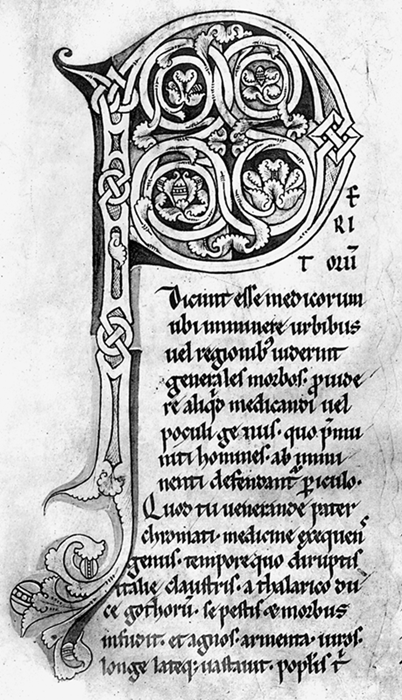 P
E
RI
T ORŪ
Dicunt esse medicorum
ubi imminere urbibus
uel regionib; uiderint
generales morbos. ꝓuide
re aliqđ medicandi uel
poculi genus. quo p̄mu
niti homines. ab immi
nenti defendant᷑ ꝑiculo.
Quod tu uenerande pater
chromati. medicine exequens
genus. tempore quo diruptis
italie claustris. a thalarico du
ce gothorū. se pestis &morbus
infudit. et agros. armenta. uiros.
longe lateq; uastauit. popl̄is t᷑